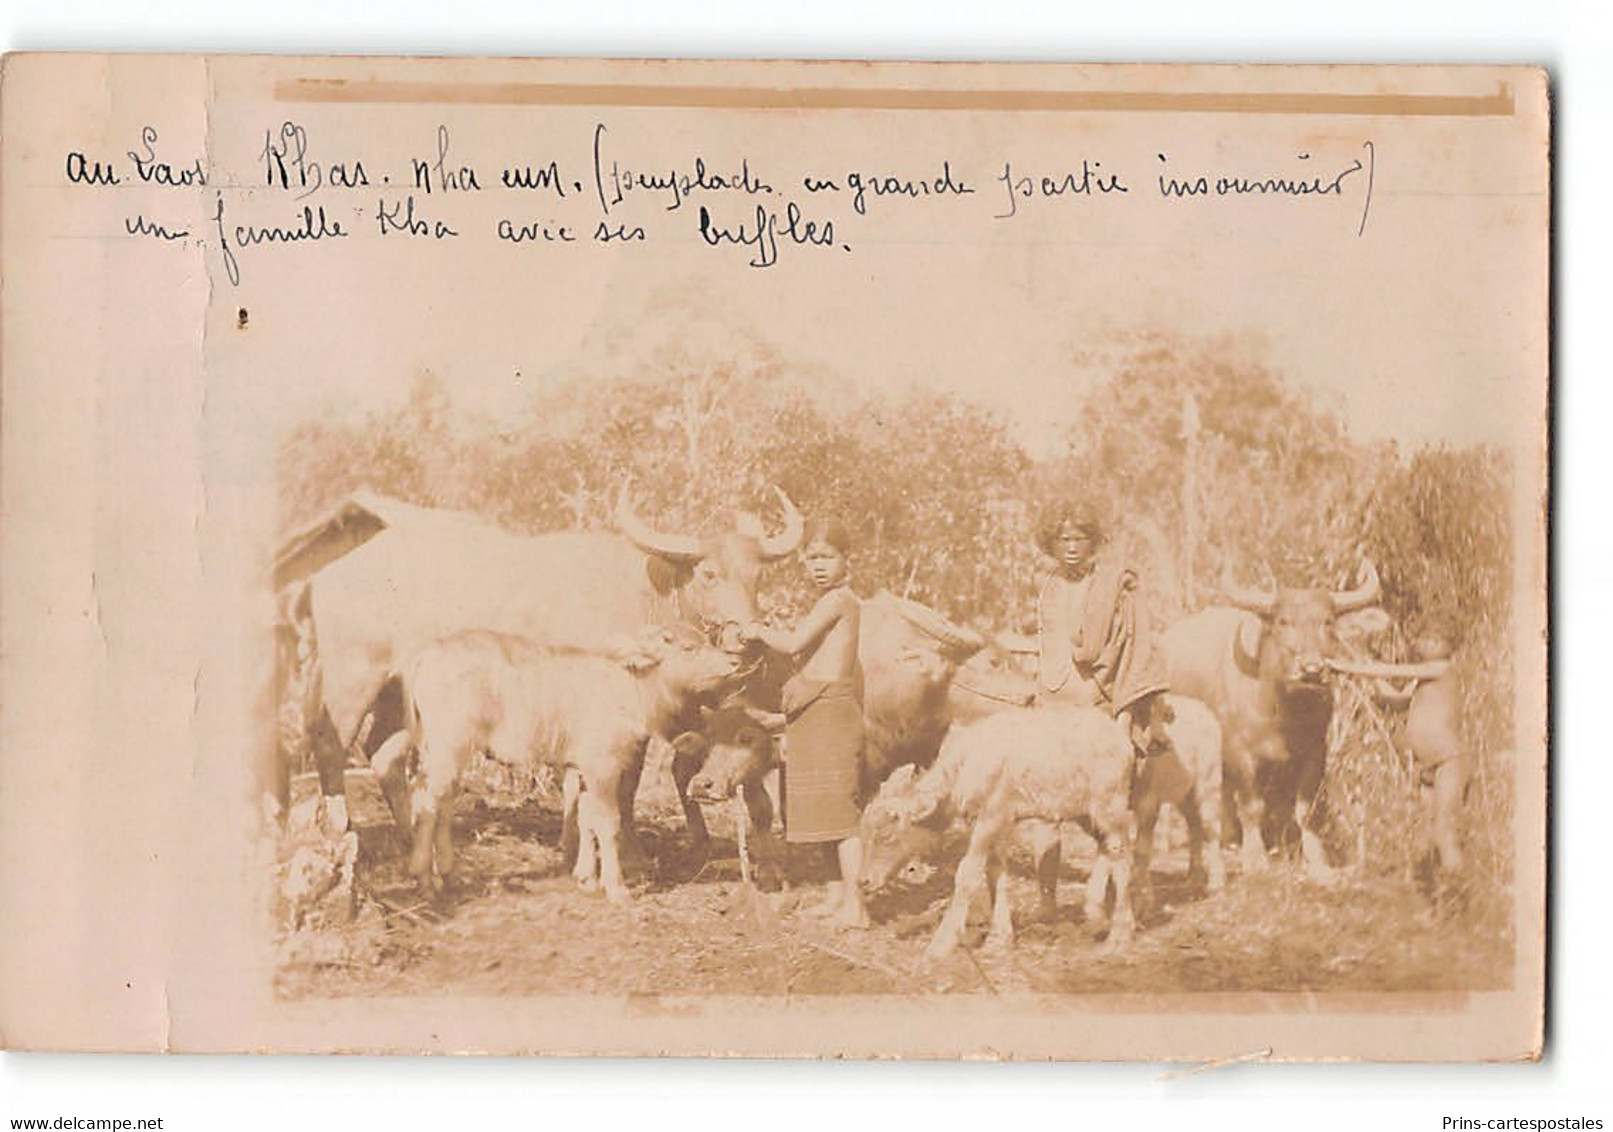 au Laos. Khas. nha eun. (peuplades en grande partie insoumises)
une famille Kha avec ses buffles.
delcampe.net
Prins-cartespostales